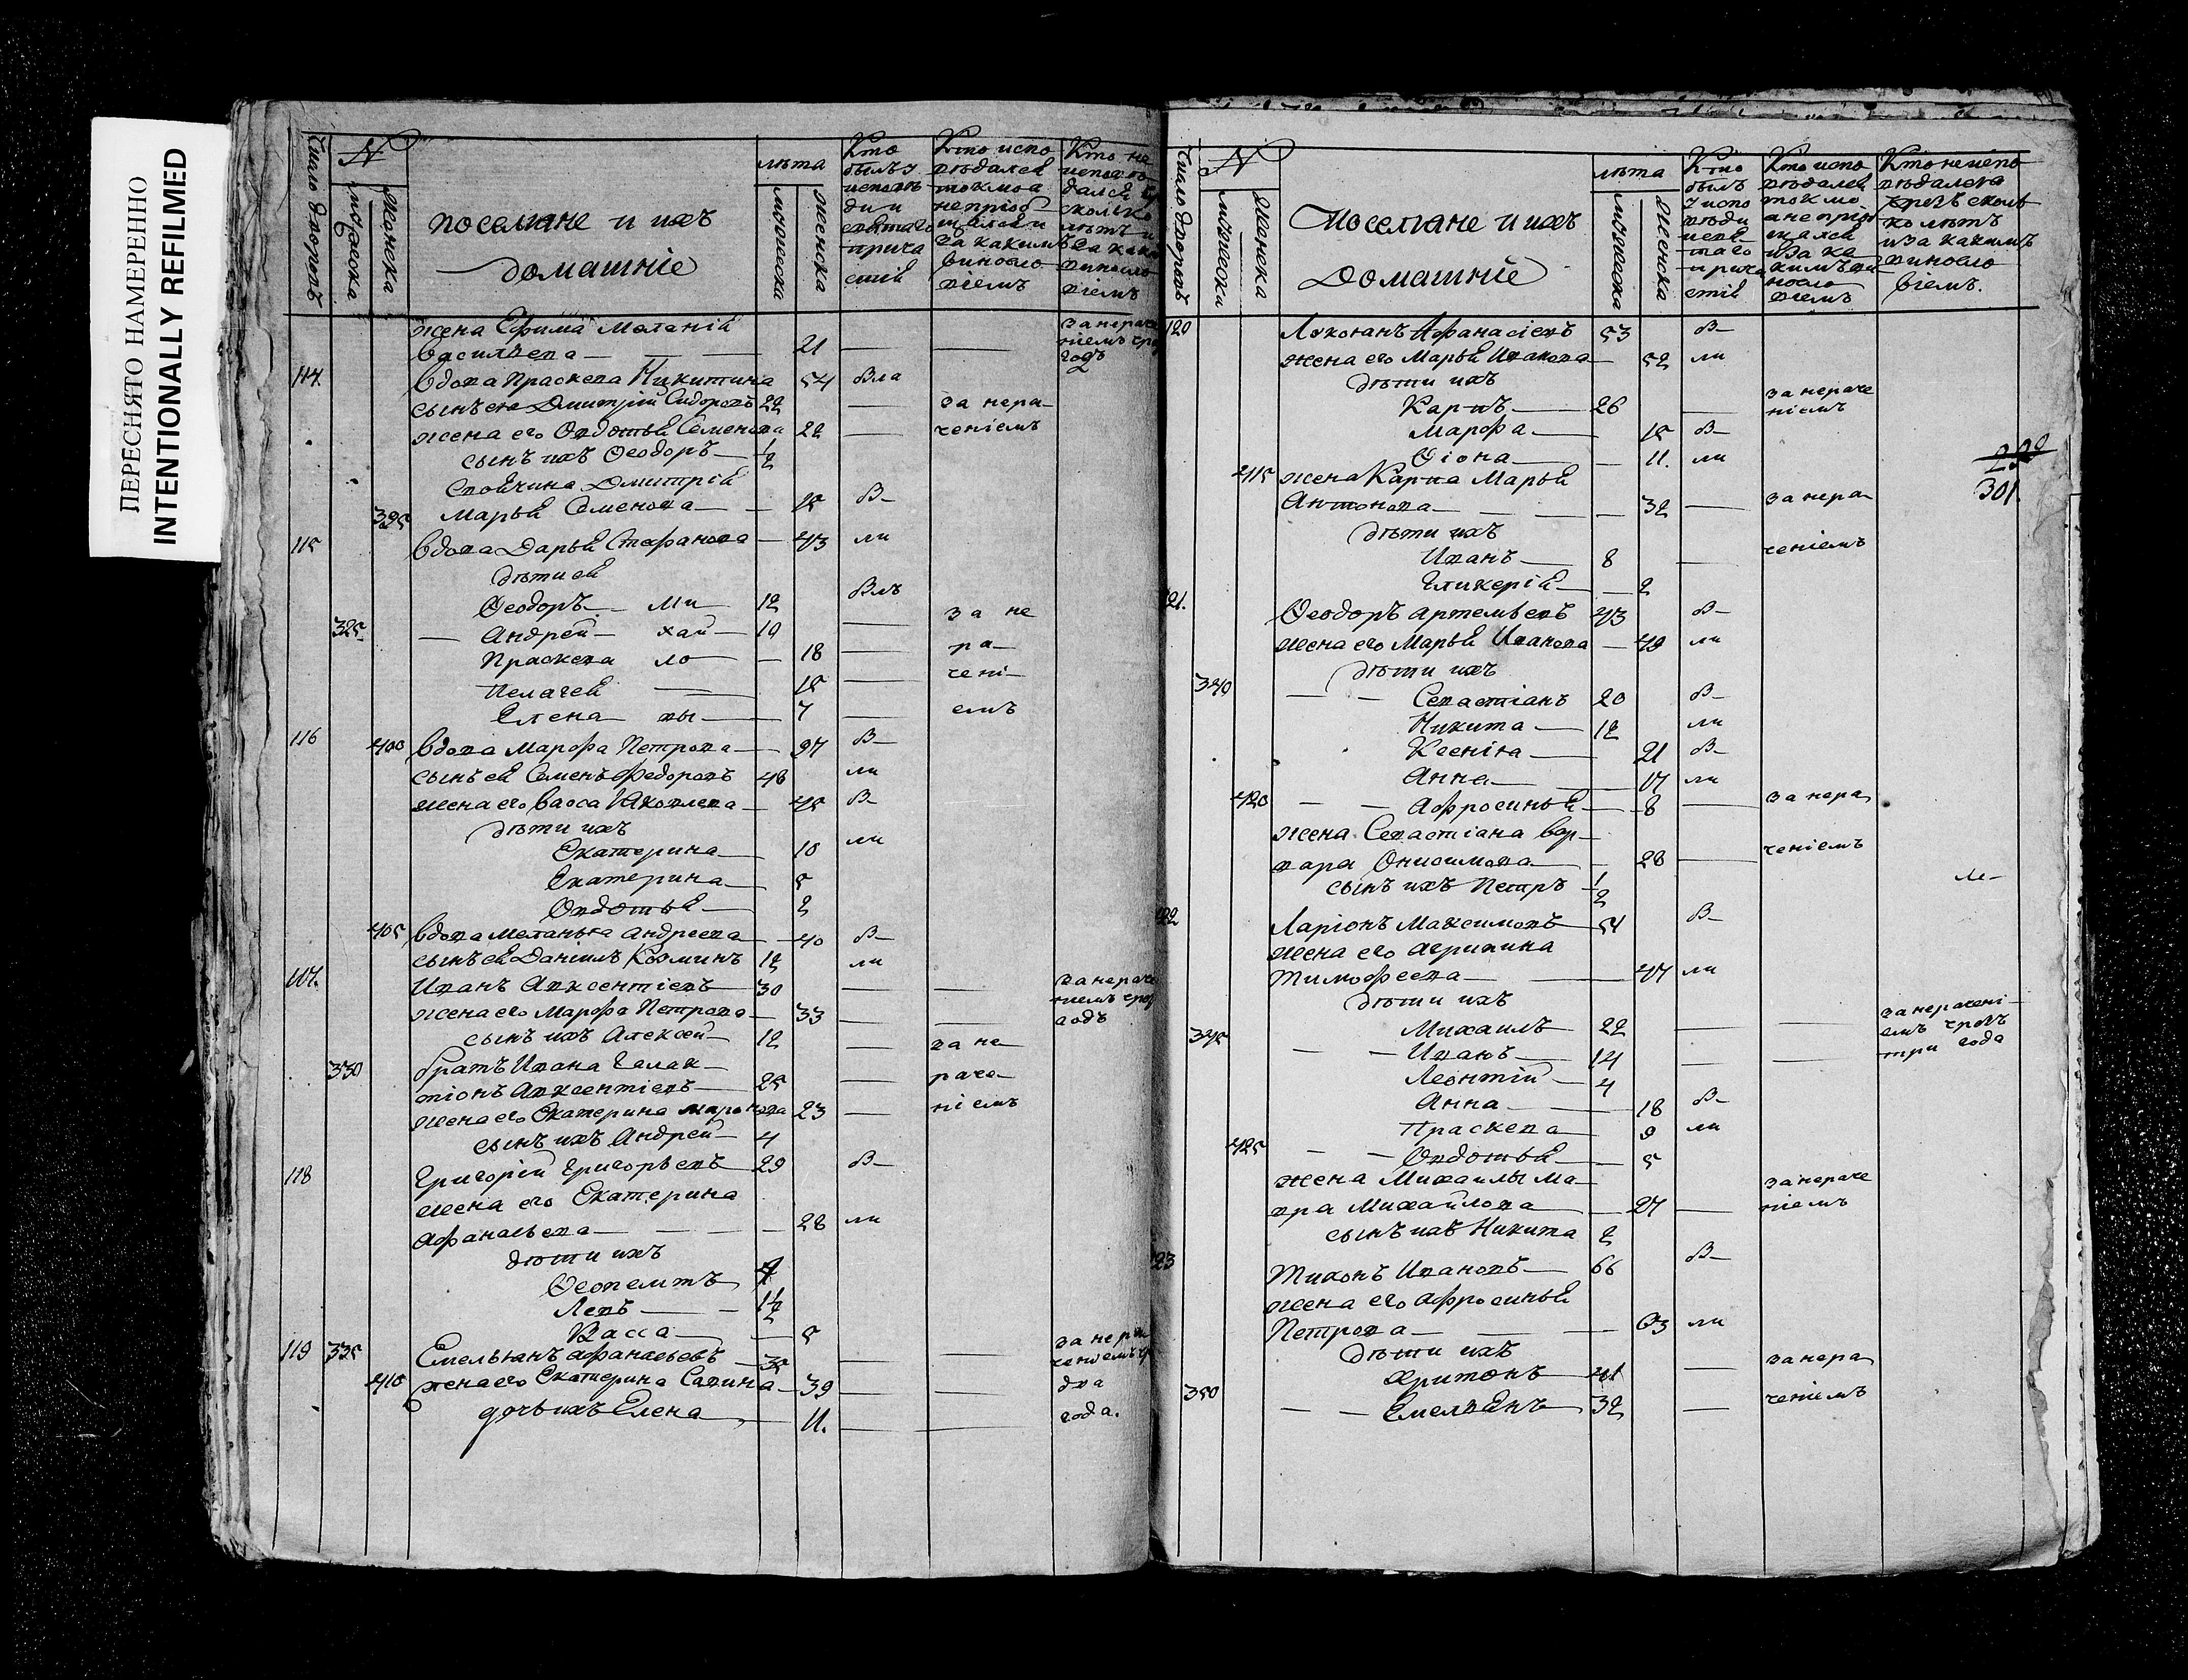 ПЕРЕСНЯТО НАМЕРЕННО
INTENTIONALLY REFILMED
Число дворовъ
N
мужеска
женска
поселяне и ихъ
домашніе
лѣта
мужеска
женска
Кто
былъ у
исповѣ
ди и
святаго
прича
стія
Кто испо
вѣдался
токмо а
не пріоб
щался и
за какимъ
винosло
віемъ
Кто не
исповѣ
дался
сколько
лѣтъ и
винosло
віемъ
жена Ефима Меланія
васильева — 21 — —
за нераче
ніемъ
годъ
114. вдова Праскева Никитина 54 Вла
сынъ ея Дмитрій Сидоровъ 22 — за нера-
жена его Овдотья Семенова 22 — ченіемъ
сынъ ихъ Ѳеодоръ — ½
своячина Дмитрія
395 Марья Семенова — 15 В-
115 вдова Дарья Стефанова — 43 ли
дѣти ея
Ѳеодоръ — Ми 12 Влъ
325. — Андрей — хай — 10 — за не
Праскева ло — 18 — ра-
Пелагея — 15 — чені-
Елена вы — 7 — емъ
116 400 вдова Марфа Петрова — 97 В-
сынъ ея Семенъ Федоровъ 48 ли
жена его Васса Яковлева — 45 В-
дѣти ихъ
Екатерина — 10 ли
Екатерина — 5
Овдотья — 2
405 вдова Меланья андреева — 40 В-
сынъ ея Даніилъ Козминъ 12 ли
117. Иванъ Авксентіевъ 30 — — за нераче
жена его Марфа Петрова — 33 — — ніемъ
годъ
сынъ ихъ Алексей — 12 — за не
330 братъ Ивана Галак-
тіонъ Авксентіевъ — 25 — раче-
жена его Екатерина миронова 23 — ніемъ
сынъ ихъ Андрей — 4
118 Григорій Григорьевъ — 29 В-
жена его Екатерина
Афанасьева — 28 ли
дѣти ихъ
Ѳеопемптъ
Левъ — 1½
Васса — 5
119 335 Емельянъ афанасьевъ — 35 — —
410 жена его Екатерина Савина — 39 — — два
дочь ихъ Елена — 11. — — года.
Число дворовъ
N
мужеска
женска
Поселяне и ихъ
Домашніе
лѣта
мужеска
женска
Кто
былъ
у испо
вѣди
и свя-
таго
прича
стія
Кто испо
вѣдался
токмо
а не пріоб
щался
и за ка
кимъ ви
носло
віемъ
Кто не испо
вѣдался
чрезъ сколь
ко лѣтъ
и за какимъ
винosло
віемъ.
120 Локоянъ Афанасіевъ 53 В-
жена его Марья Иванова — 52 ли
дѣти ихъ
Карпъ — 26 — за нераче
ніемъ
Марфа — 15 В-
Ѳіона — 11. ли
301.
415 жена Карпа Марья
Антонова — 32 — за нера-
дѣти ихъ
Иванъ — 8 — ченіемъ
Гликерія — 2
121. Ѳеодоръ артемьевъ 43 В-
жена его Марья Иванова — 49 ли
дѣти ихъ
340 — — Севастіанъ 20 В-
Никита — 12 ли
Ксенія — 21 В-
Анна — 17 ли
420 — — Афросинья — 8 — за нера
жена Севастіана Вар-
вара Онисимова — 28 — ченіемъ
сынъ ихъ Петръ ½
122 Ларіонъ Максимовъ 54 В-
жена его агрипина
тимофеева — 47 ли
дѣти ихъ
Михаилъ 22 — — за нерачені-
345 — — Иванъ 14 — — емъ чрезъ
три года
Леонтій — 4
Анна — 18 В-
Праскева — 9 ли
425 — — Овдотья — 5
жена Михаилы Ма-
вра Михайлова — 27 — за нераче
ніемъ
сынъ ихъ Никита 2
123 Тихонъ Ивановъ 66 В-
жена его Афросинья
Петрова — 63 ли
дѣти ихъ
Хритонъ 41 — за нера
350 — — Емельянъ 32 — ченіемъ